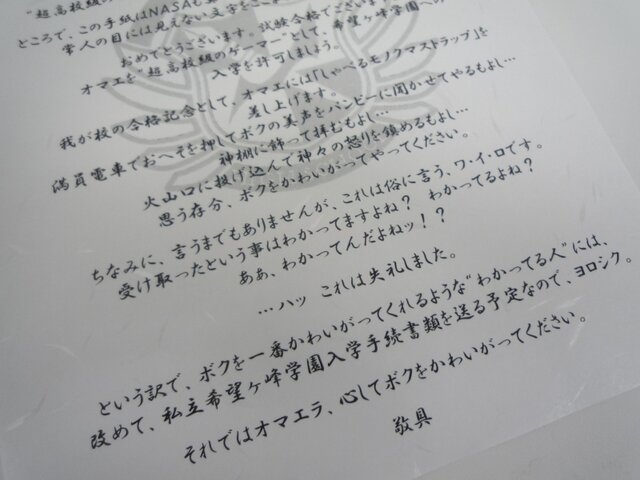 "超高校級の
ところで、この手紙はNASAも
常人の目には見えない文字をここ
おめでとうございます。試験合格でございます
オマエを"超高校級のゲーマー"として、希望ヶ峰学園への
入学を許可しましょう。
我が校の合格記念として、オマエには「しゃべるモノクマストラップ」を
差し上げます。
満員電車でおへそを押してボクの美声をパンピーに聞かせてやるもよし…
神棚に飾って拝むもよし…
火山口に投げ込んで神々の怒りを鎮めるもよし…
思う存分、ボクをかわいがってやってください。
ちなみに、言うまでもありませんが、これは俗に言う、ワ・イ・ロです。
受け取ったという事はわかってますよね？ わかってるよね？
ああ、わかってんだよねッ！？
…ハッ これは失礼しました。
という訳で、ボクを一番かわいがってくれるような"わかってる人"には、
改めて、私立希望ヶ峰学園入学手続書類を送る予定なので、ヨロシク。
それではオマエラ、心してボクをかわいがってください。
敬具